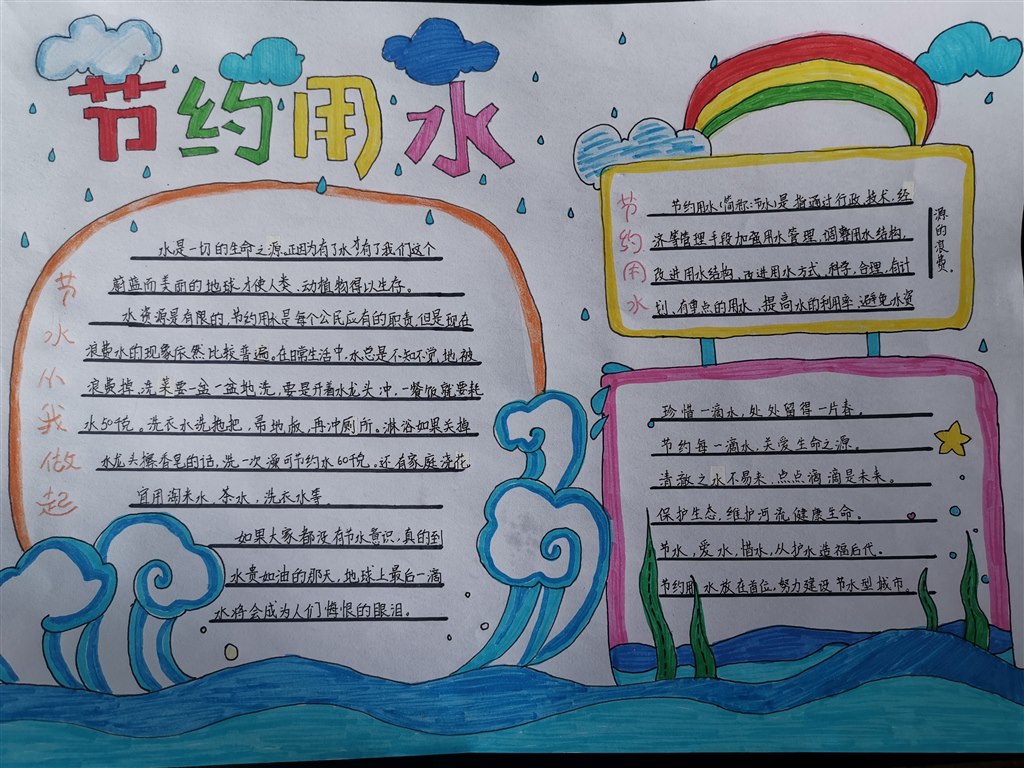 节约用水
节水从我做起
水是一切的生命之源,正因为有了水才有了我们这个
蔚蓝而美丽的地球才使人类、动植物得以生存。
水资源是有限的,节约用水是每个公民应有的职责,但是现在
浪费水的现象依然比较普遍。在日常生活中,水总是不知不觉地被
浪费掉,洗菜要一盆一盆地洗,要是开着水龙头冲,一餐饭就要耗
水50千克。洗衣水洗拖把,帚地板,再冲厕所。淋浴如果关掉
水龙头擦香皂的话,洗一次澡可节约水60千克。还有家庭浇花,
宜用淘米水、茶水,洗衣水等。
如果大家都没有节水意识,真的到
水贵如油的那天,地球上最后一滴
水将会成为人们悔恨的眼泪。
节约用水
节约用水(简称:节水)是指通过行政、技术、经
济等管理手段加强用水管理,调整用水结构,
改进用水结构,改进用水方式,科学、合理、有计
划、有重点的用水,提高水的利用率,避免水资
源的浪费。
珍惜一滴水,处处留得一片春。
节约每一滴水,关爱生命之源。
清澈之水不易来,点点滴滴是未来。
保护生态,维护河流健康生命。
节水,爱水,惜水,从护水造福后代。
节约用水放在首位,努力建设节水型城市。